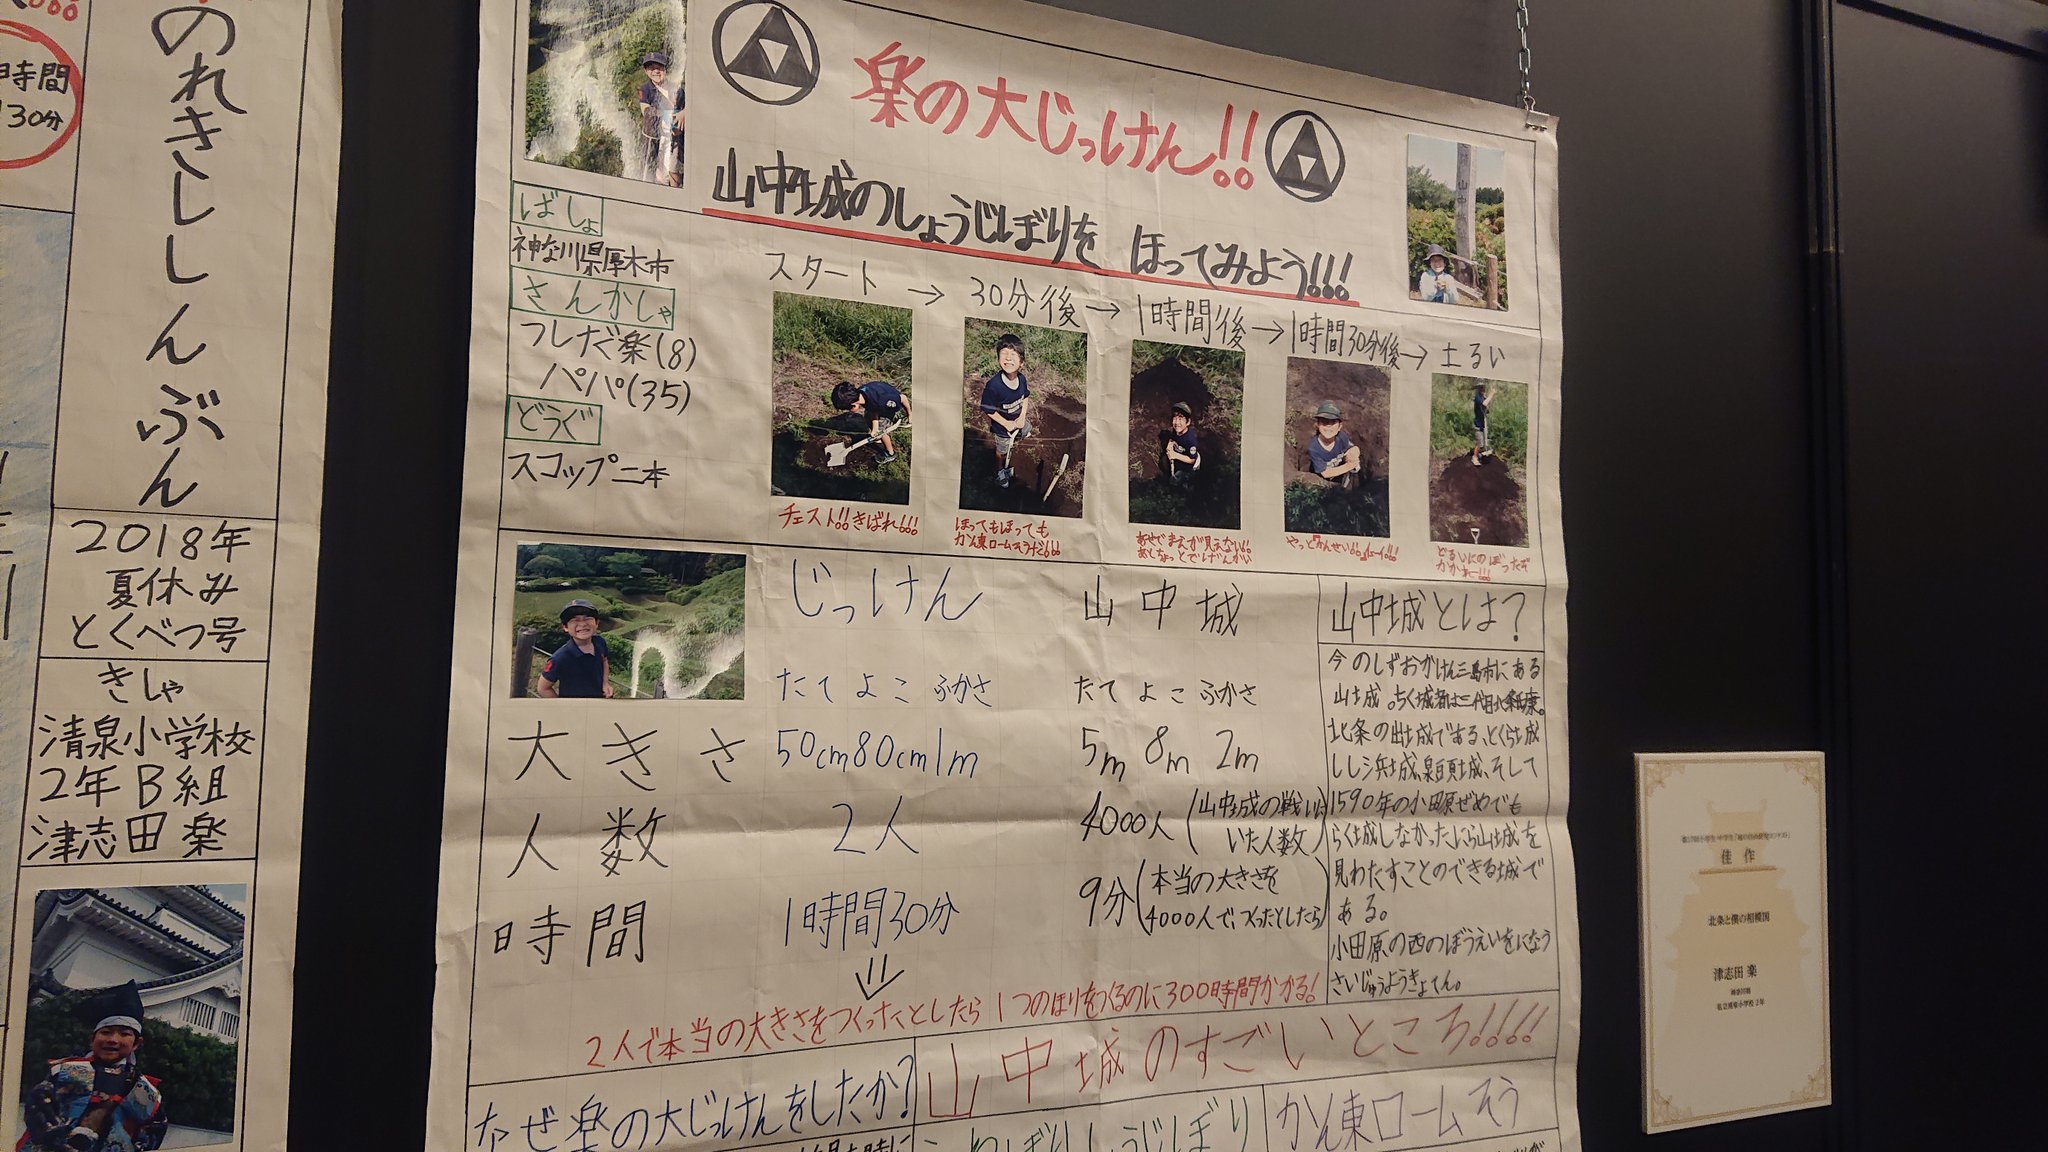 時間
30分
のれきししんぶん
2018年
夏休み
とくべつ号
きしゃ
清泉小学校
2年B組
津志田楽
楽の大じっけん!!
山中城のしょうじぼりを ほってみよう!!!
ばしょ
神奈川県厚木市
さんかしゃ
つしだ楽(8)
パパ(35)
どうぐ
スコップ二本
スタート → 30分後 → 1時間後 → 1時間30分後 → 土るい
チェスト!!きばれ!!!
ほってもほっても
かん東ロームそうだ!!!
あせでまえが見えない!!
あとちょっとでげんかい
やっとかんせい!!
どるいにのぼったぞ
じっけん 山中城
たて よこ ふかさ たて よこ ふかさ
大きさ 50cm 80cm 1m 5m 8m 2m
人数 2人 4000人(山中城の戦いに
いた人数)
時間 1時間30分 9分(本当の大きさを
4000人でつくったとしたら)
2人で本当の大きさをつくったとしたら 1つのほりをつくるのに300時間かかる!
山中城とは?
今のしずおかけん三島市にある
山城。ちく城者は三代目北条氏康。
北条の出城である、とくら城
しし浜城、泉頭城、そして
1590年の小田原ぜめでも
らく城しなかったにら山城を
見わたすことのできる城で
ある。
小田原の西のぼうえいをになう
さいじゅうようきょてん。
なぜ楽の大じっけんをしたか?
山中城のすごいところ!!!!
しょうじぼり
かん東ロームそう
佳作
北条と僕の相模国
津志田 楽